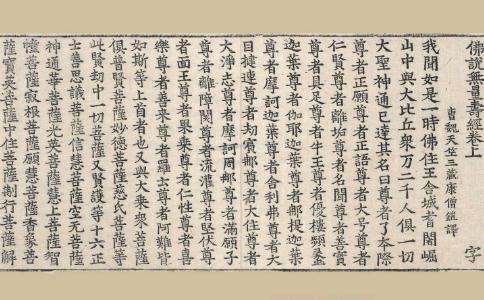 佛說無量壽經卷上　字
曹魏天竺三藏康僧鎧譯
我聞如是一時佛住王舍城耆闍崛
山中與大比丘衆万二千人俱一切
大聖神通已達其名曰尊者了本際
尊者正願尊者正語尊者大号尊者
仁賢尊者離垢尊者名聞尊者善實
尊者具足尊者牛王尊者優樓頻蠡
迦葉尊者伽耶迦葉尊者那提迦葉
尊者摩訶迦葉尊者舍利弗尊者大
目揵連尊者劫賓那尊者大住尊者
大淨志尊者摩訶周那尊者滿願子
尊者離障閡尊者流灌尊者堅伏尊
者面王尊者乘尊者仁性尊者喜
樂尊者善來尊者羅云尊者阿難皆
如斯等上首者也又與大乘衆菩薩
俱普賢菩薩妙德菩薩慈氏菩薩等
此賢劫中一切菩薩又賢護等十六正
士善思議菩薩信慧菩薩空無菩薩
神通華菩薩光英菩薩慧上菩薩智
幢菩薩寂根菩薩願慧菩薩香象菩
薩寶英菩薩中住菩薩制行菩薩解